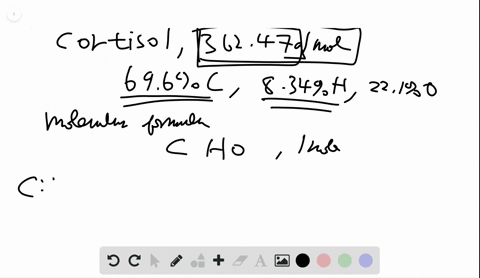 cortisol, 362.47g/mol
69.6%C, 8.34%H, 22.1%O
Molecular formula
C H O , 1mole
C::